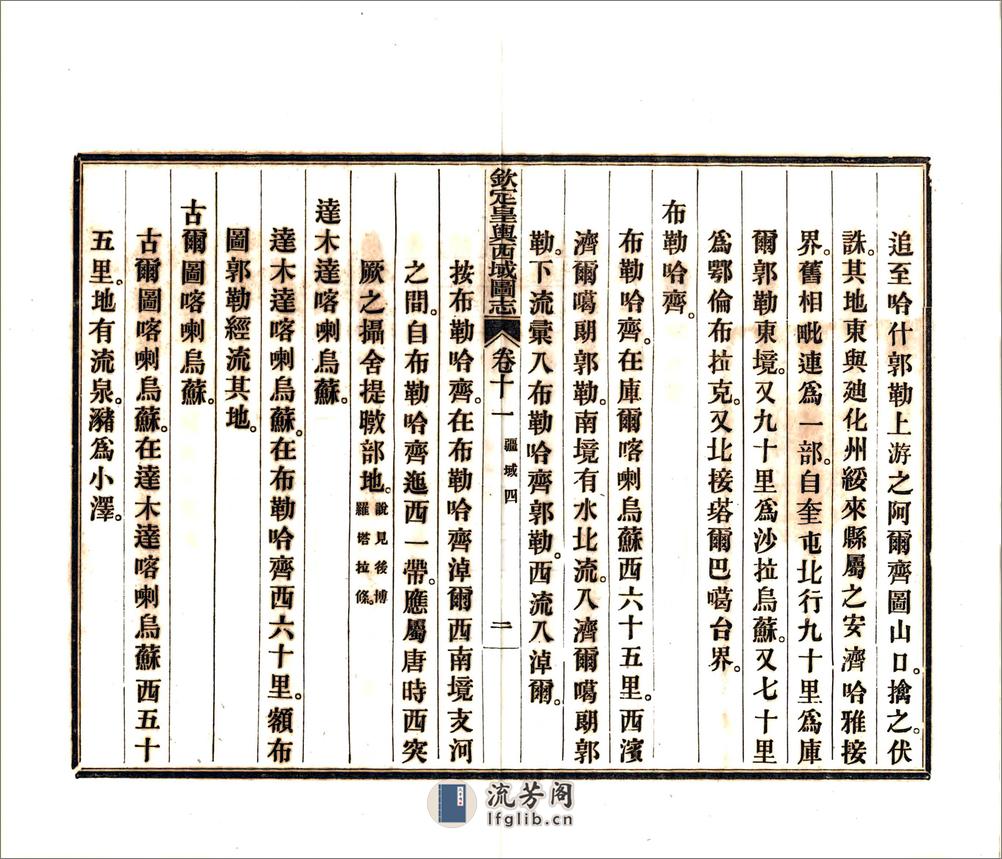 追至哈什郭勒上游之阿爾齊圖山口。擒之。伏
誅。其地東與廸化州綏來縣屬之安濟哈雅接
界。舊相毗連爲一部。自奎屯北行九十里爲庫
爾郭勒東境。又九十里爲沙拉烏蘇。又七十里
爲鄂倫布拉克。又北接塔爾巴噶台界。
布勒哈齊。
布勒哈齊。在庫爾喀喇烏蘇西六十五里。西濱
濟爾噶朗郭勒。南境有水北流。入濟爾噶朗郭
勒。下流彙入布勒哈齊郭勒。西流入淖爾。
欽定皇輿西域圖志 卷十一 疆域四 二
按布勒哈齊。在布勒哈齊淖爾西南境支河
之間。自布勒哈齊迤西一帶。應屬唐時西突
厥之攝舍提暾部地。說見後博
羅塔拉條。
達木達喀喇烏蘇。
達木達喀喇烏蘇。在布勒哈齊西六十里。額布
圖郭勒經流其地。
古爾圖喀喇烏蘇。
古爾圖喀喇烏蘇。在達木達喀喇烏蘇西五十
五里。地有流泉。豬爲小澤。
流芳阁
lfglib.cn